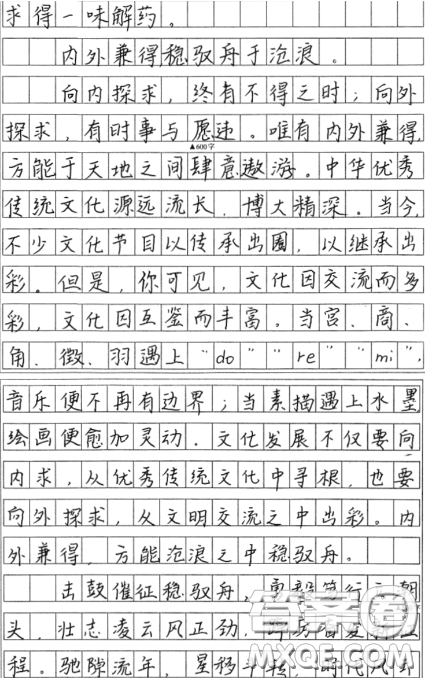 求得一味解药。
内外兼得,稳驭舟于沧浪。
向内探求，终有不得之时；向外
探求，有时事与愿违。唯有内外兼得,
▲600字
方能于天地之间肆意遨游。中华优秀
传统文化源远流长，博大精深。当今,
不少文化节目以传承出圈，以继承出
彩。但是，你可见，文化因交流而多
彩，文化因互鉴而丰富。当宫、商、
角、徵、羽遇上“do”“re”“mi”,
音乐便不再有边界；当素描遇上水墨
绘画便愈加灵动．文化发展不仅要向
内求，从优秀传统文化中寻根，也要
向外探求，从文明交流之中出彩。内
外兼得，方能沧浪之中稳驭舟。
击鼓催征稳驭舟，奋楫笃行
头，壮志凌云风正劲，
程。驰隙流年，星移斗转，时代
答案圈
MXQE.COM